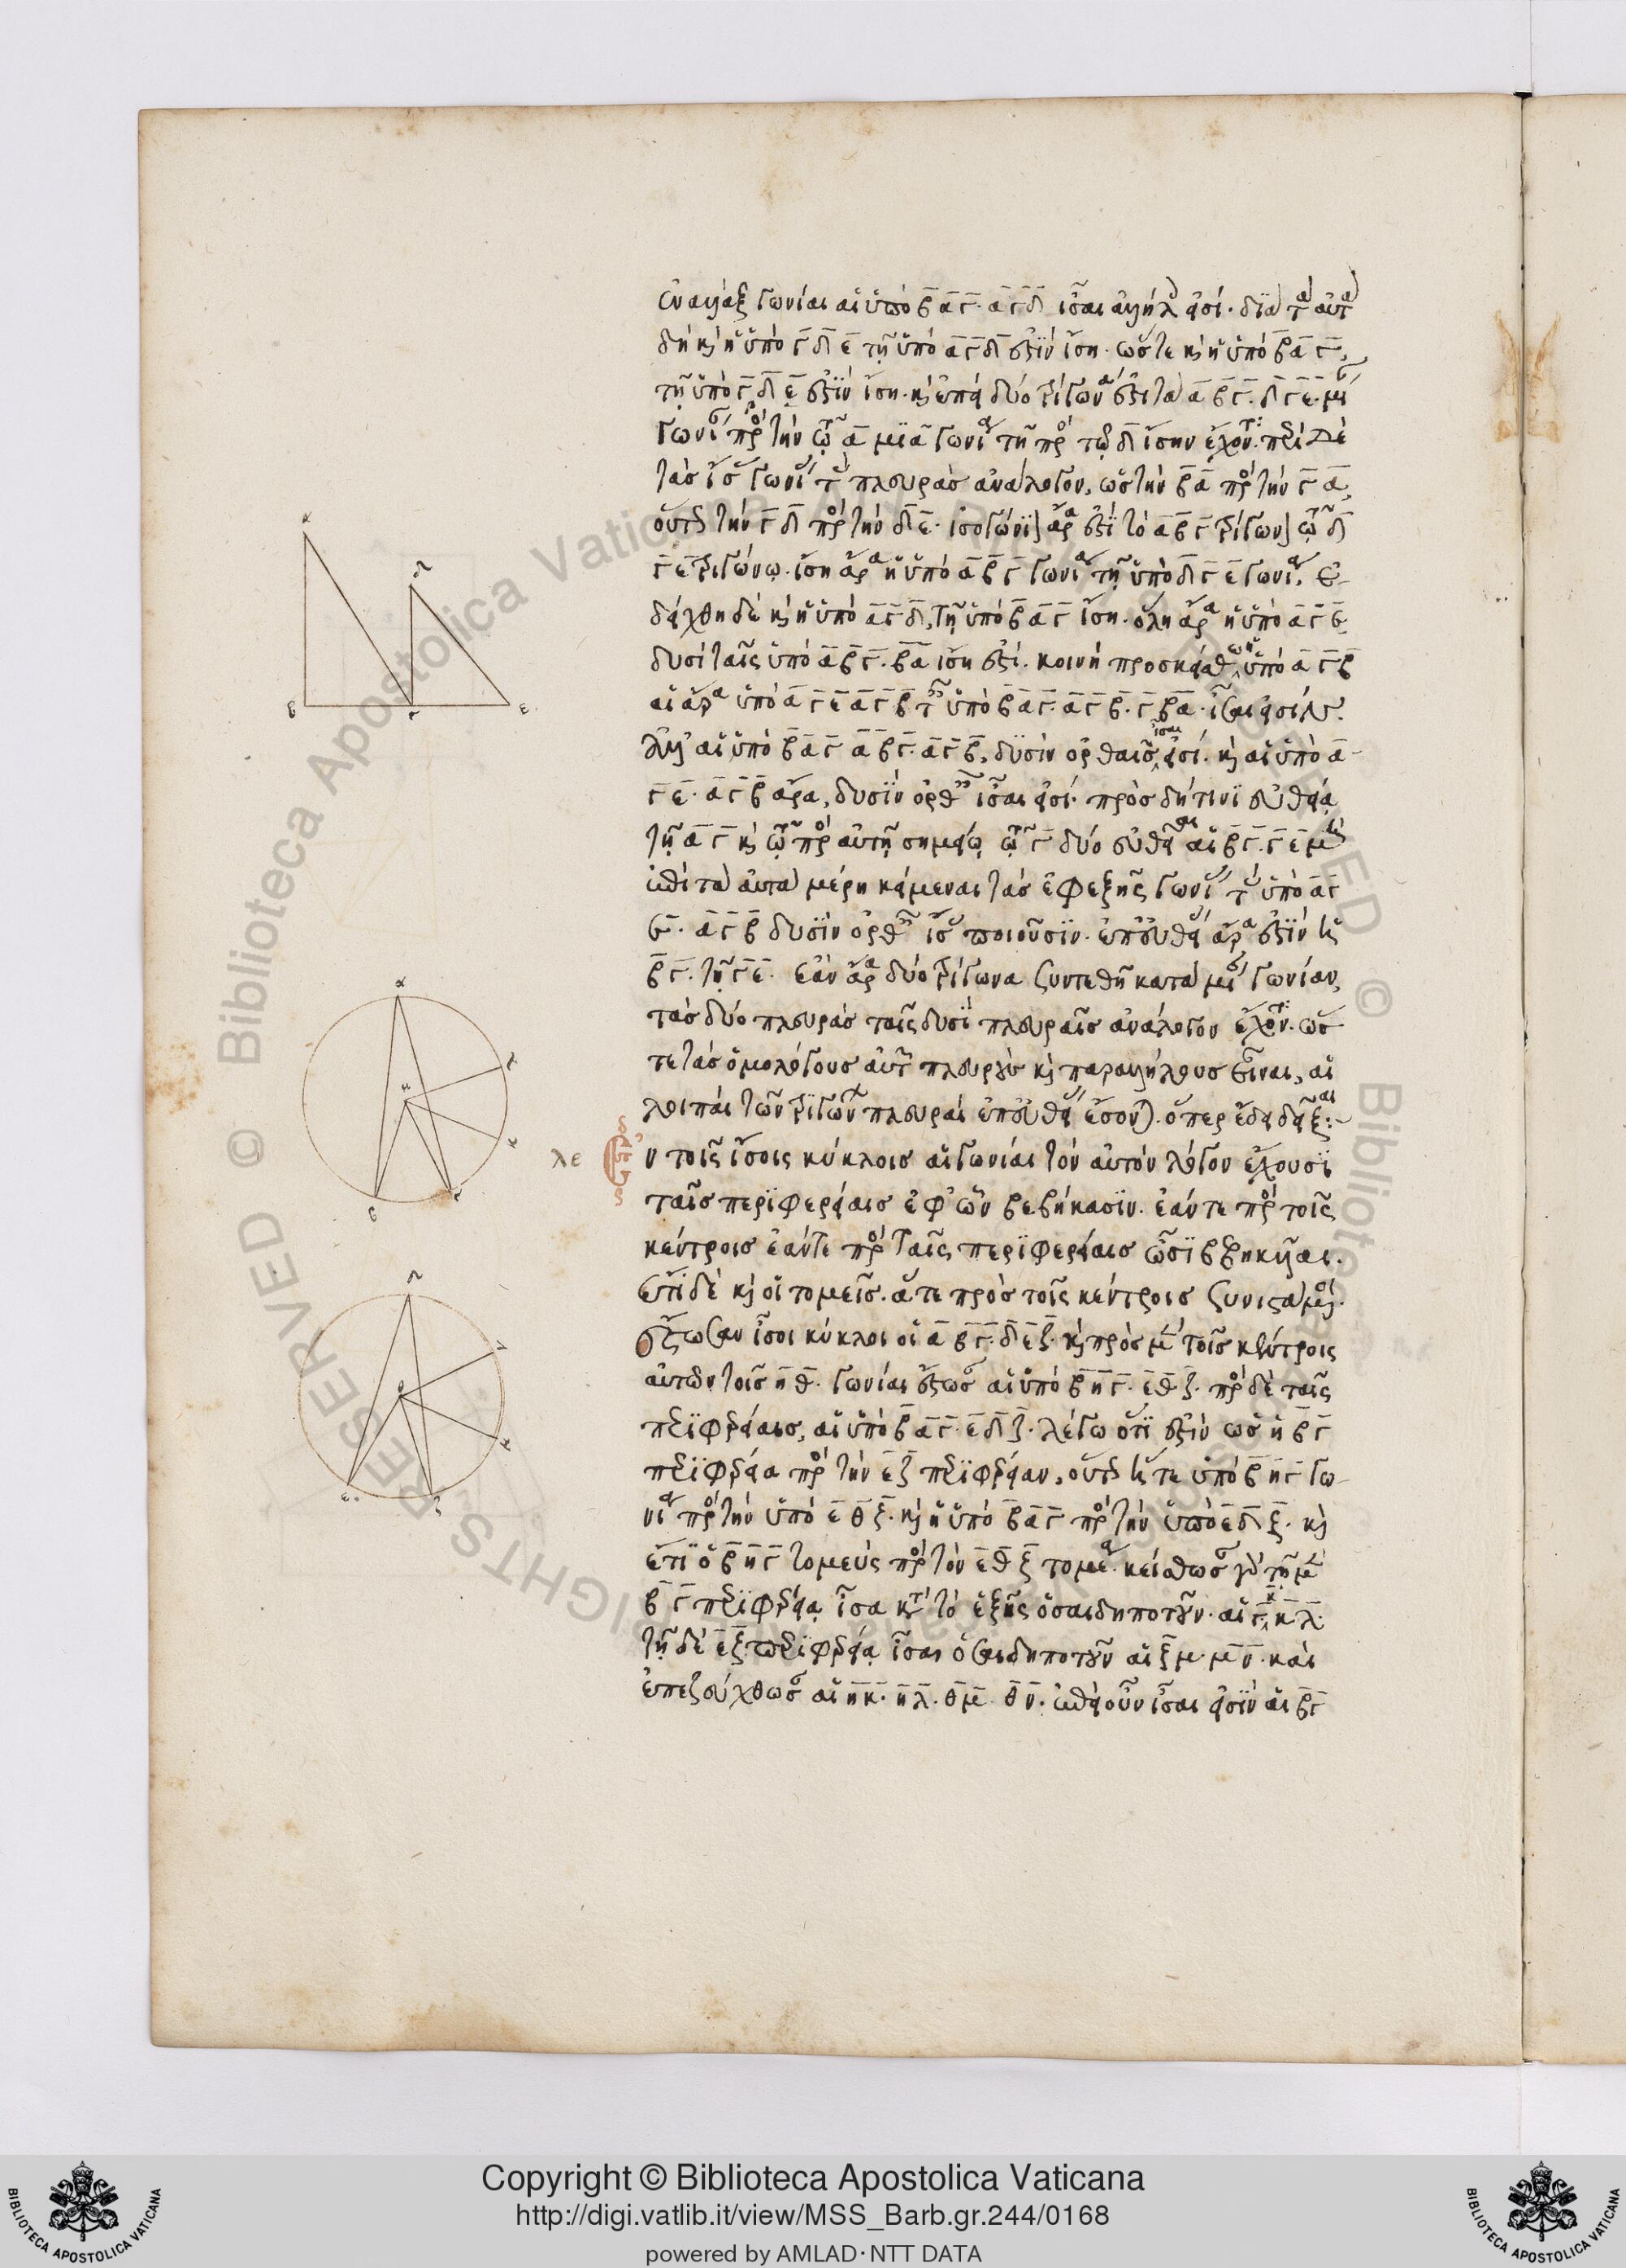 ἐναλλὰξ γωνίαι αἱ ὑπὸ β̅α̅γ̅· α̅γ̅δ̅ ἴσαι ἀλλήλ εἰσί· διὰ τ αὐτ
δὴ κ ἡ ὑπὸ γ̅δ̅ε̅ τῇ ὑπὸ α̅γ̅δ̅ ἐστὶν ἴση· ὥστε κ ἡ ὑπὸ β̅α̅γ̅
τῇ ὑπὸ γ̅δ̅ε̅ ἐστὶν ἴση· κ ἐπεὶ δύο τρίγων ἐστι τὰ α̅β̅γ̅· δ̅γ̅ε̅· μί
γωνί πρ τὴν τῷ α̅ μία γωνί τῇ πρ τῷ δ̅ ἴσην ἔχον· περὶ δὲ
τὰσ ἴσ γωνί τ πλευρὰσ ἀνάλογον, ὡσ τὴν β̅α̅ πρ τὴν γ̅α̅,
οὕτω τὴν γ̅δ̅ πρ τὴν δ̅ε̅· ἰσογώνι ἄρ ἐστὶ τὸ α̅β̅γ̅ τρίγων τῷ δ̅
γ̅ε̅ τριγώνῳ· ἴση ἄρα ἡ ὑπὸ α̅β̅γ̅ γωνία τῇ ὑπὸ δ̅γ̅ε̅ γωνία· ἐ-
δείχθη δὲ κ ἡ ὑπὸ α̅γ̅δ̅, τῇ ὑπὸ β̅α̅γ̅ ἴση· ὅλη ἄρα ἡ ὑπὸ α̅γ̅ε̅
δυσὶ ταῖς ὑπὸ α̅β̅γ̅· β̅α̅ ἴση ἐστί· κοινὴ προσκείσθω ἡ ὑπὸ α̅γ̅β̅
αἱ ἄρα ὑπὸ α̅γ̅ε̅ α̅γ̅β̅ τ ὑπὸ β̅α̅γ̅· α̅γ̅β̅· γ̅β̅α̅· ἴσαι εἰσίν.
ἀλλ αἱ ὑπὸ β̅α̅γ̅ α̅β̅γ̅· α̅γ̅β̅, δυσὶν ὀρθαῖσ ἴσαι εἰσί· κ αἱ ὑπὸ α̅
γ̅ε̅· α̅γ̅β̅ ἄρα, δυσὶν ὀρθ ἴσαι εἰσί· πρὸσ δή τινι εὐθείᾳ
τῇ α̅γ̅ κ τῷ πρ αὐτῇ σημείῳ τῷ γ̅ δύο εὐθεῖαι αἱ β̅γ̅· γ̅ε̅ μ
ἐπὶ τὰ αὐτὰ μέρη κείμεναι τὰσ ἐφεξῆς γωνί τ ὑπὸ α̅γ̅
ε̅· α̅γ̅β̅ δυσὶν ὀρθ ἴσ ποιοῦσιν· ἐπ εὐθεί ἄρα ἐστὶν ἡ
β̅γ̅· τῇ γ̅ε̅· ἐὰν ἄρα δύο τρίγωνα συντεθῇ κατὰ μί γωνίαν,
τὰσ δύο πλευρὰσ ταῖς δυσὶ πλευραῖσ ἀνάλογον ἔχον· ὡσ
τε τὰσ ὁμολόγουσ αὐτ πλευρὰσ κ παραλλήλουσ εἶναι, αἱ
λοιπαὶ τῶν τριγώνων πλευραὶ ἐπ εὐθεί ἔσονται· ὅπερ ἔδει δεῖξαι:-
λε Ἐν τοῖς ἴσοις κύκλοισ αἱ γωνίαι τὸν αὐτὸν λόγον ἔχουσι
ταῖσ περιφερείαισ ἐφ᾽ ὧν βεβήκασιν· ἐάν τε πρ τοῖς
κέντροισ ἐάν τε πρ ταῖς περιφερείαισ ὦσι βεβηκυῖαι·
ἔτι δὲ κ οἱ τομεῖσ· ἅτε πρὸσ τοῖς κέντροισ συνιστάμ·
ἔστωσαν ἴσοι κύκλοι οἱ α̅β̅γ̅· δ̅ε̅ζ̅· κ πρὸσ μ τοῖσ κέντροις
αὐτῶν τοῖσ η̅θ̅· γωνίαι ἔστωσ αἱ ὑπὸ β̅η̅γ̅· ε̅θ̅ζ̅· πρ δὲ ταῖς
περιφερείαισ, αἱ ὑπὸ β̅α̅γ̅· ε̅δ̅ζ̅· λέγω ὅτι ἐστὶν ὡσ ἡ β̅γ̅
περιφέρεια πρ τὴν ε̅ζ̅ περιφέρειαν, οὕτω ἥ τε ὑπὸ β̅η̅γ̅ γω-
νία πρ τὴν ὑπὸ ε̅θ̅ζ̅· κ ἡ ὑπὸ β̅α̅γ̅ πρ τὴν ὑπὸ ε̅δ̅ζ̅· κ
ἔτι ὁ β̅η̅γ̅ τομεύς πρ τὸν ε̅θ̅ζ̅ τομέα· κείσθωσ γὰρ τῇ μ
β̅γ̅ περιφερείᾳ ἴσα κατ τὸ ἑξῆς ὁσαιδηποτοῦν· αἱ γ̅κ̅, κ̅λ̅·
τῇ δὲ ε̅ζ̅ περιφερείᾳ ἴσαι ὁσαιδηποτοῦν αἱ ζ̅μ̅· μ̅ν̅· καὶ
ἐπεζεύχθωσ αἱ η̅κ̅· η̅λ̅· θ̅μ̅· θ̅ν̅· ἐπεὶ οὖν ἴσαι εἰσὶν αἱ β̅γ̅
α
δ
β
γ
ε
α
λ
η
κ
β
γ
δ
ν
θ
μ
ε
ζ
Copyright © Biblioteca Apostolica Vaticana
http://digi.vatlib.it/view/MSS_Barb.gr.244/0168
powered by AMLAD·NTT DATA
BIBLIOTECA APOSTOLICA VATICANA
BIBLIOTECA APOSTOLICA VATICANA